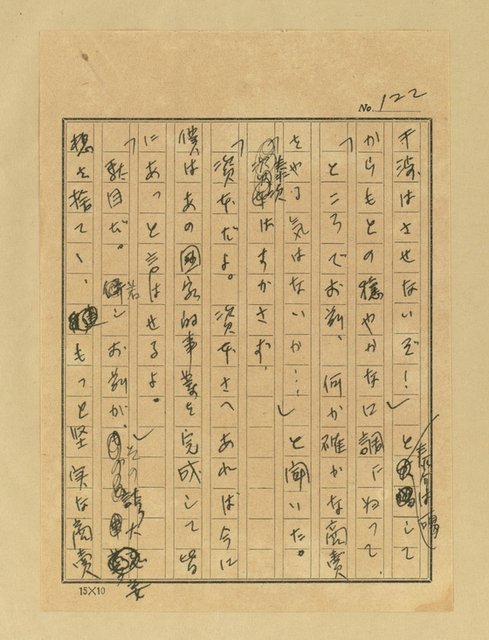 No. 122
干渉はさせないぞ！」と して
からもとの穏やかな口調にかって
「ところでお前、何か確かな商売
をやる気はないか…」と聞いた。
泰次はすかさず、
「資本だよ。資本さへあれば今に
僕はあの国家的事業を完成して皆
にあっと言はせるよ。」
「駄目だ。若しお前が、その誇大妄
想を捨てゝ、もっと堅実な商売
15×10